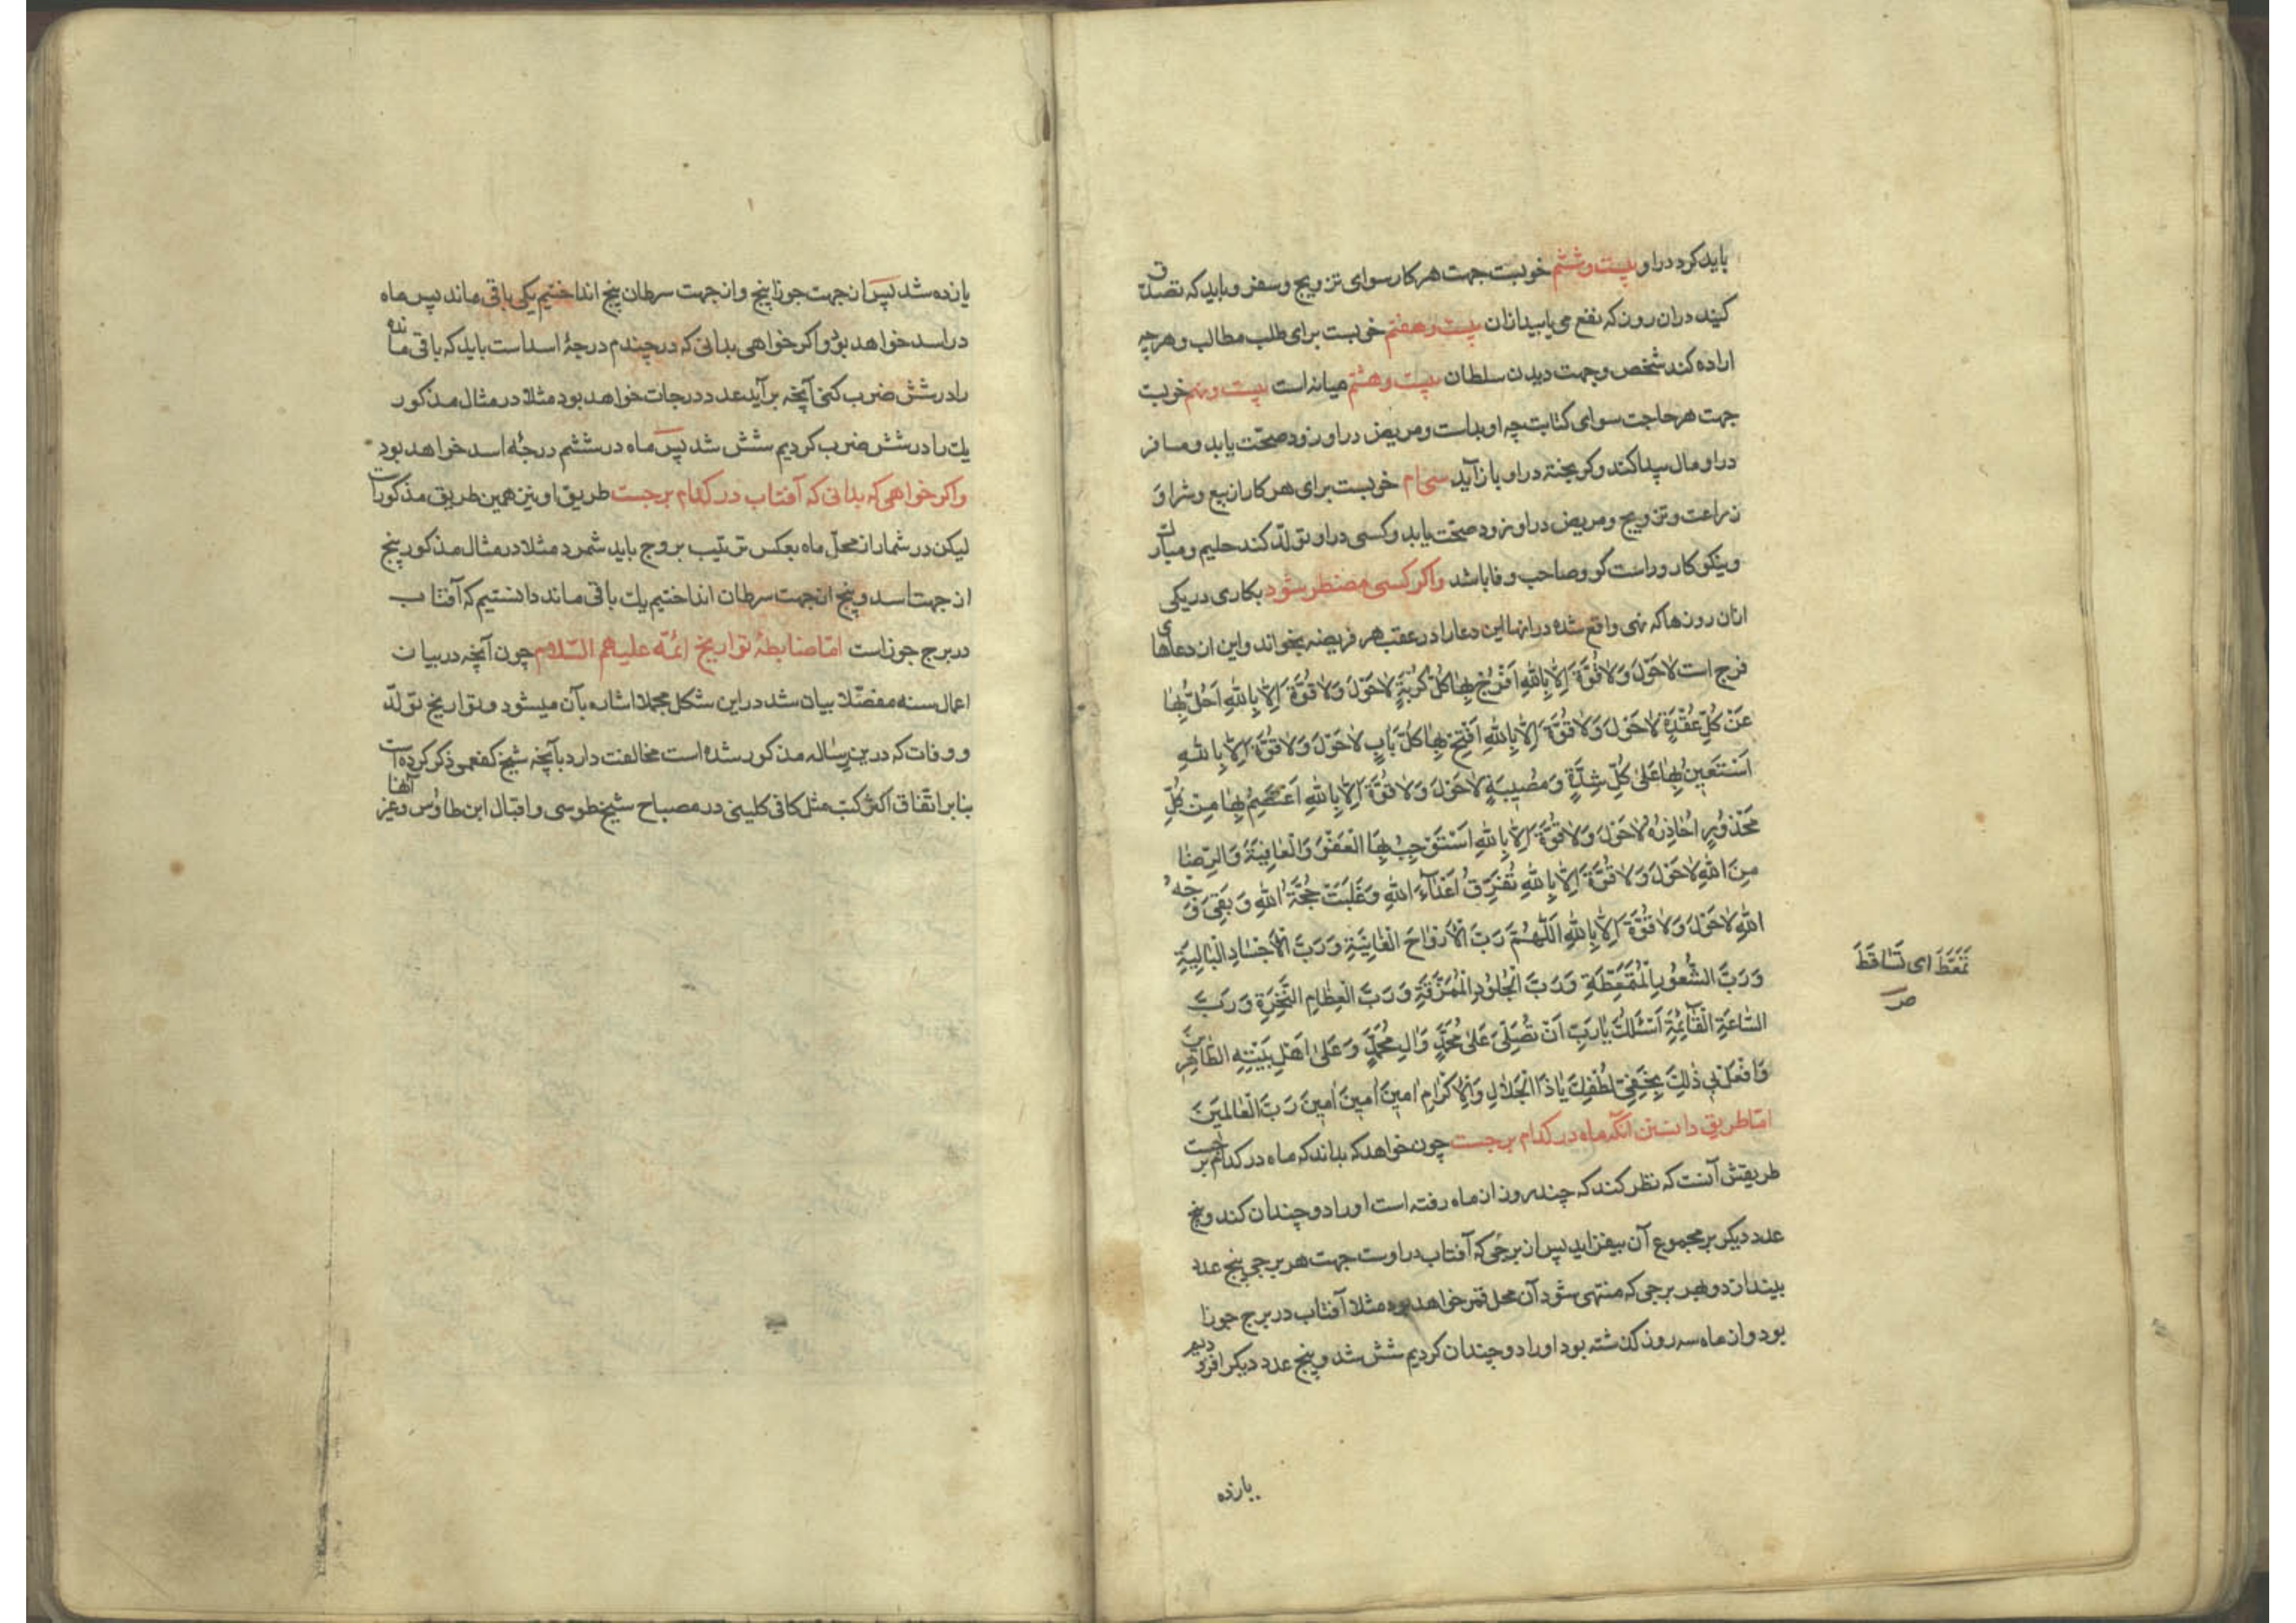 باید کرد در او بیست و ششم خوبست جهت هر کار سوای تزویج و سفر و باید که تصدق
کنید در ان روز که نفع می یابید ازان بیست و هفتم خوبست برای طلب مطالب و هر چه
اراده کند شخص و جهت دیدن سلطان بیست و هشتم میانه است بیست و نهم خوبست
جهت هر حاجت سوای کتابت چه او بد است و مریض در او زود صحّت یابد و مسافر
در او مال پیدا کند و کریخته در او باز آید سی ام خوبست برای هر کار از بیع و شرا و
زراعت و تزویج و مریض در او زود صحّت یابد و کسی در او تولّد کند حلیم و مبارك
و نیکو کار و راست کو و صاحب وفا باشد و اکر کسی مضطر شود بکاری در یکی
ازان روزها که نهی واقع شده در انها این دعا را در عقب هر فریضه بخواند و این از دعاهای
فرج است لَاحَوْلَ وَلَاقُوَّةَ اِلَّا بِاللهِ اَفْرُجُ بِهَا كُلَّ كُرْبَةٍ لَاحَوْلَ وَلَاقُوَّةَ اِلَّا بِاللهِ اَحُلُّ بِهَا
عَنْ كُلِّ عُقْدَةٍ لَاحَوْلَ وَلَاقُوَّةَ اِلَّا بِاللهِ اَفْتَحُ بِهَا كُلَّ بَابٍ لَاحَوْلَ وَلَاقُوَّةَ اِلَّا بِاللهِ
اَسْتَعِينُ بِهَا عَلىٰ كُلِّ شِدَّةٍ وَمُصِيبَةٍ لَاحَوْلَ وَلَاقُوَّةَ اِلَّا بِاللهِ اَعْتَصِمُ بِهَا مِنْ كُلِّ
مَحْذُورٍ اُحَاذِرُهُ لَاحَوْلَ وَلَاقُوَّةَ اِلَّا بِاللهِ اَسْتَوْجِبُ بِهَا الْعَفْوَ وَالْعَافِيَةَ وَالرِّضَا
مِنَ اللهِ لَاحَوْلَ وَلَاقُوَّةَ اِلَّا بِاللهِ تُفَرِّقُ اَعْدَآءَ اللهِ وَغَلَبَتْ حُجَّةُ اللهِ وَبَقِيَ وَجْهُ
اللهِ لَاحَوْلَ وَلَاقُوَّةَ اِلَّا بِاللهِ اَللّٰهُمَّ رَبَّ الْاَرْوَاحِ الْفَانِيَةِ وَرَبَّ الْاَجْسَادِ الْبَالِيَةِ
وَرَبَّ الشُّعُورِ الْمُتَمَعِّطَةِ وَرَبَّ الْجُلُودِ الْمُمَزَّقَةِ وَرَبَّ الْعِظَامِ النَّخِرَةِ وَرَبَّ
السَّاعَةِ الْقَآئِمَةِ اَسْئَلُكَ يَارَبِّ اَنْ تُصَلِّيَ عَلىٰ مُحَمَّدٍ وَاٰلِ مُحَمَّدٍ وَعَلىٰ اَهْلِ بَيْتِهِ الطَّاهِرِينَ
وَافْعَلْ بِي ذٰلِكَ بِخَفِيِّ لُطْفِكَ يَاذَا الْجَلَالِ وَالْاِكْرَامِ اٰمِينَ اٰمِينَ اٰمِينَ رَبَّ الْعَالَمِينَ
امّا طریق دانستن آنکه ماه در کدام برجست چون خواهد که بداند که ماه در کدام برجست
طریقش آنست که نظر کند که چند روز از ماه رفته است او را دو چندان کند و پنج
عدد دیکر بر مجموع آن بیفزاید پس از برجی که آفتاب در اوست جهت هر برجی پنج عدد
بیندازد و بهر برجی که منتهی شود آن محل قمر خواهد بود مثلا آفتاب در برج جوزا
بود و از ماه سه روز کذشته بود او را دو چندان کردیم شش شد و پنج عدد دیکر افزودیم
یازده
تَمَعَّطَ ای تَسَاقَطَ
ص
یازده شد پس از جهت جوزا پنج و از جهت سرطان پنج انداختیم یکی باقی ماند پس ماه
در اسد خواهد بود و اکر خواهی بدانی که در چندم درجهٔ اسد است باید که باقی مانده
را در شش ضرب کنی آنچه بر آید عدد درجات خواهد بود مثلا در مثال مذکور
یك را در شش ضرب کردیم شش شد پس ماه در ششم درجهٔ اسد خواهد بود
و اکر خواهی که بدانی که آفتاب در کدام برجست طریق او نیز همین طریق مذکورست
لیکن در شمار از محلّ ماه بعکس ترتیب بروج باید شمرد مثلا در مثال مذکور پنج
از جهت اسد و پنج از جهت سرطان انداختیم یك باقی ماند دانستیم که آفتاب
در برج جوزاست امّا ضابطهٔ تواریخ ائمّه علیهم السّلام چون آنچه در بیان
اعمال سنه مفصّلا بیان شد در این شکل مجملا اشاره بآن میشود و تواریخ تولّد
و وفات که در ین رساله مذکور شده است مخالفت دارد بآنچه شیخ کفعمی ذکر کرده است
بنا بر اتّفاق اکثر کتب مثل کافی کلینی در مصباح شیخ طوسی و اقبال ابن طاوس و غیر آنها